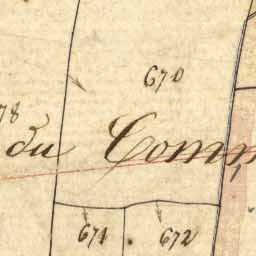 670
78
du Comm
671 672